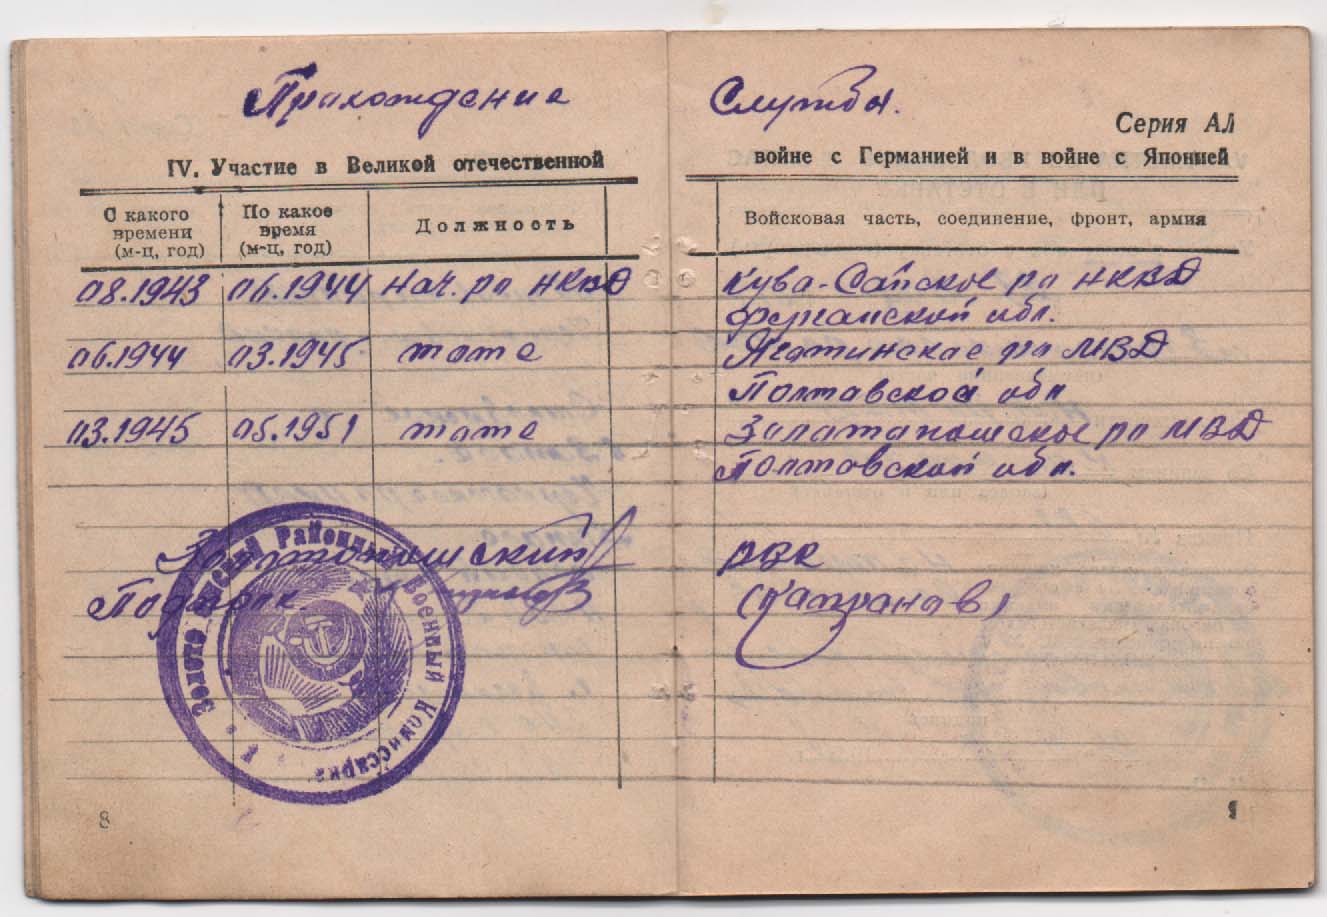 Прохождение Службы.
Серия АЛ
IV. Участие в Великой отечественной войне с Германией и в войне с Японией
С какого времени (м-ц, год) По какое время (м-ц, год) Должность Войсковая часть, соединение, фронт, армия
08.1943 06.1944 Нач. ро НКВД Кува-Сайское ро НКВД
Ферганской обл.
06.1944 03.1945 тоже Яготинское ро МВД
Полтавской обл
03.1945 05.1951 тоже Золотоношское ро МВД
Полтавской обл.
Золотоношский РВК
Подполк. (Капранов)
Районный Военный Комиссариат
8
9